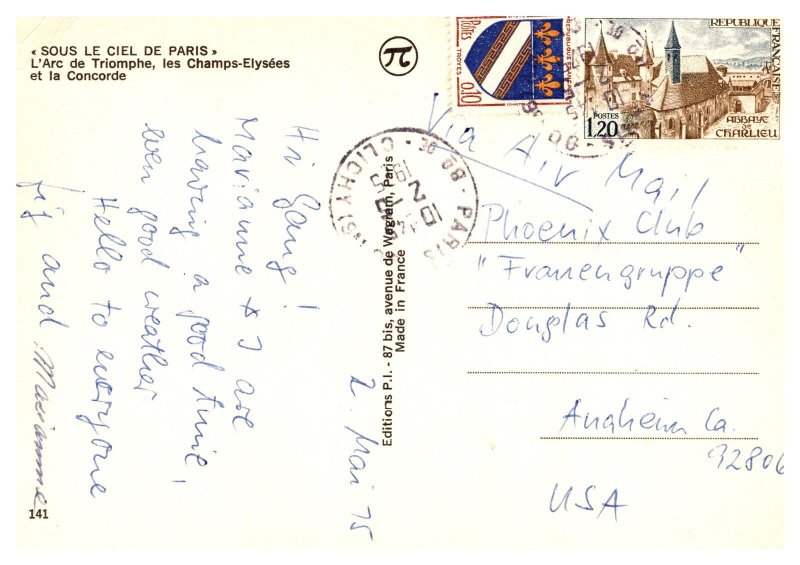 « SOUS LE CIEL DE PARIS »
L'Arc de Triomphe, les Champs-Elysées
et la Concorde
Hi Gang!
Marianne & I are
having a good time,
even good weather
Hello to everyone
and Marianne
2. Mai 75
141
Editions P.I. - 87 bis, avenue de Wagram, Paris
Made in France
POSTES
TROYES
0,10
REPUBLIQUE FRANÇAISE
REPUBLIQUE FRANÇAISE
POSTES
1,20
ABBAYE
DE
CHARLIEU
PARIS
CLICHY
Via Air Mail
Phoenix Club
"Frauengruppe"
Douglas Rd.
Anaheim Ca.
92806
USA